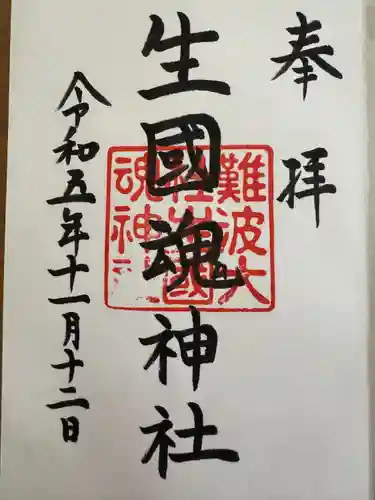 奉拝
生國魂神社
難波大
社生國
魂神
令和五年十一月十二日